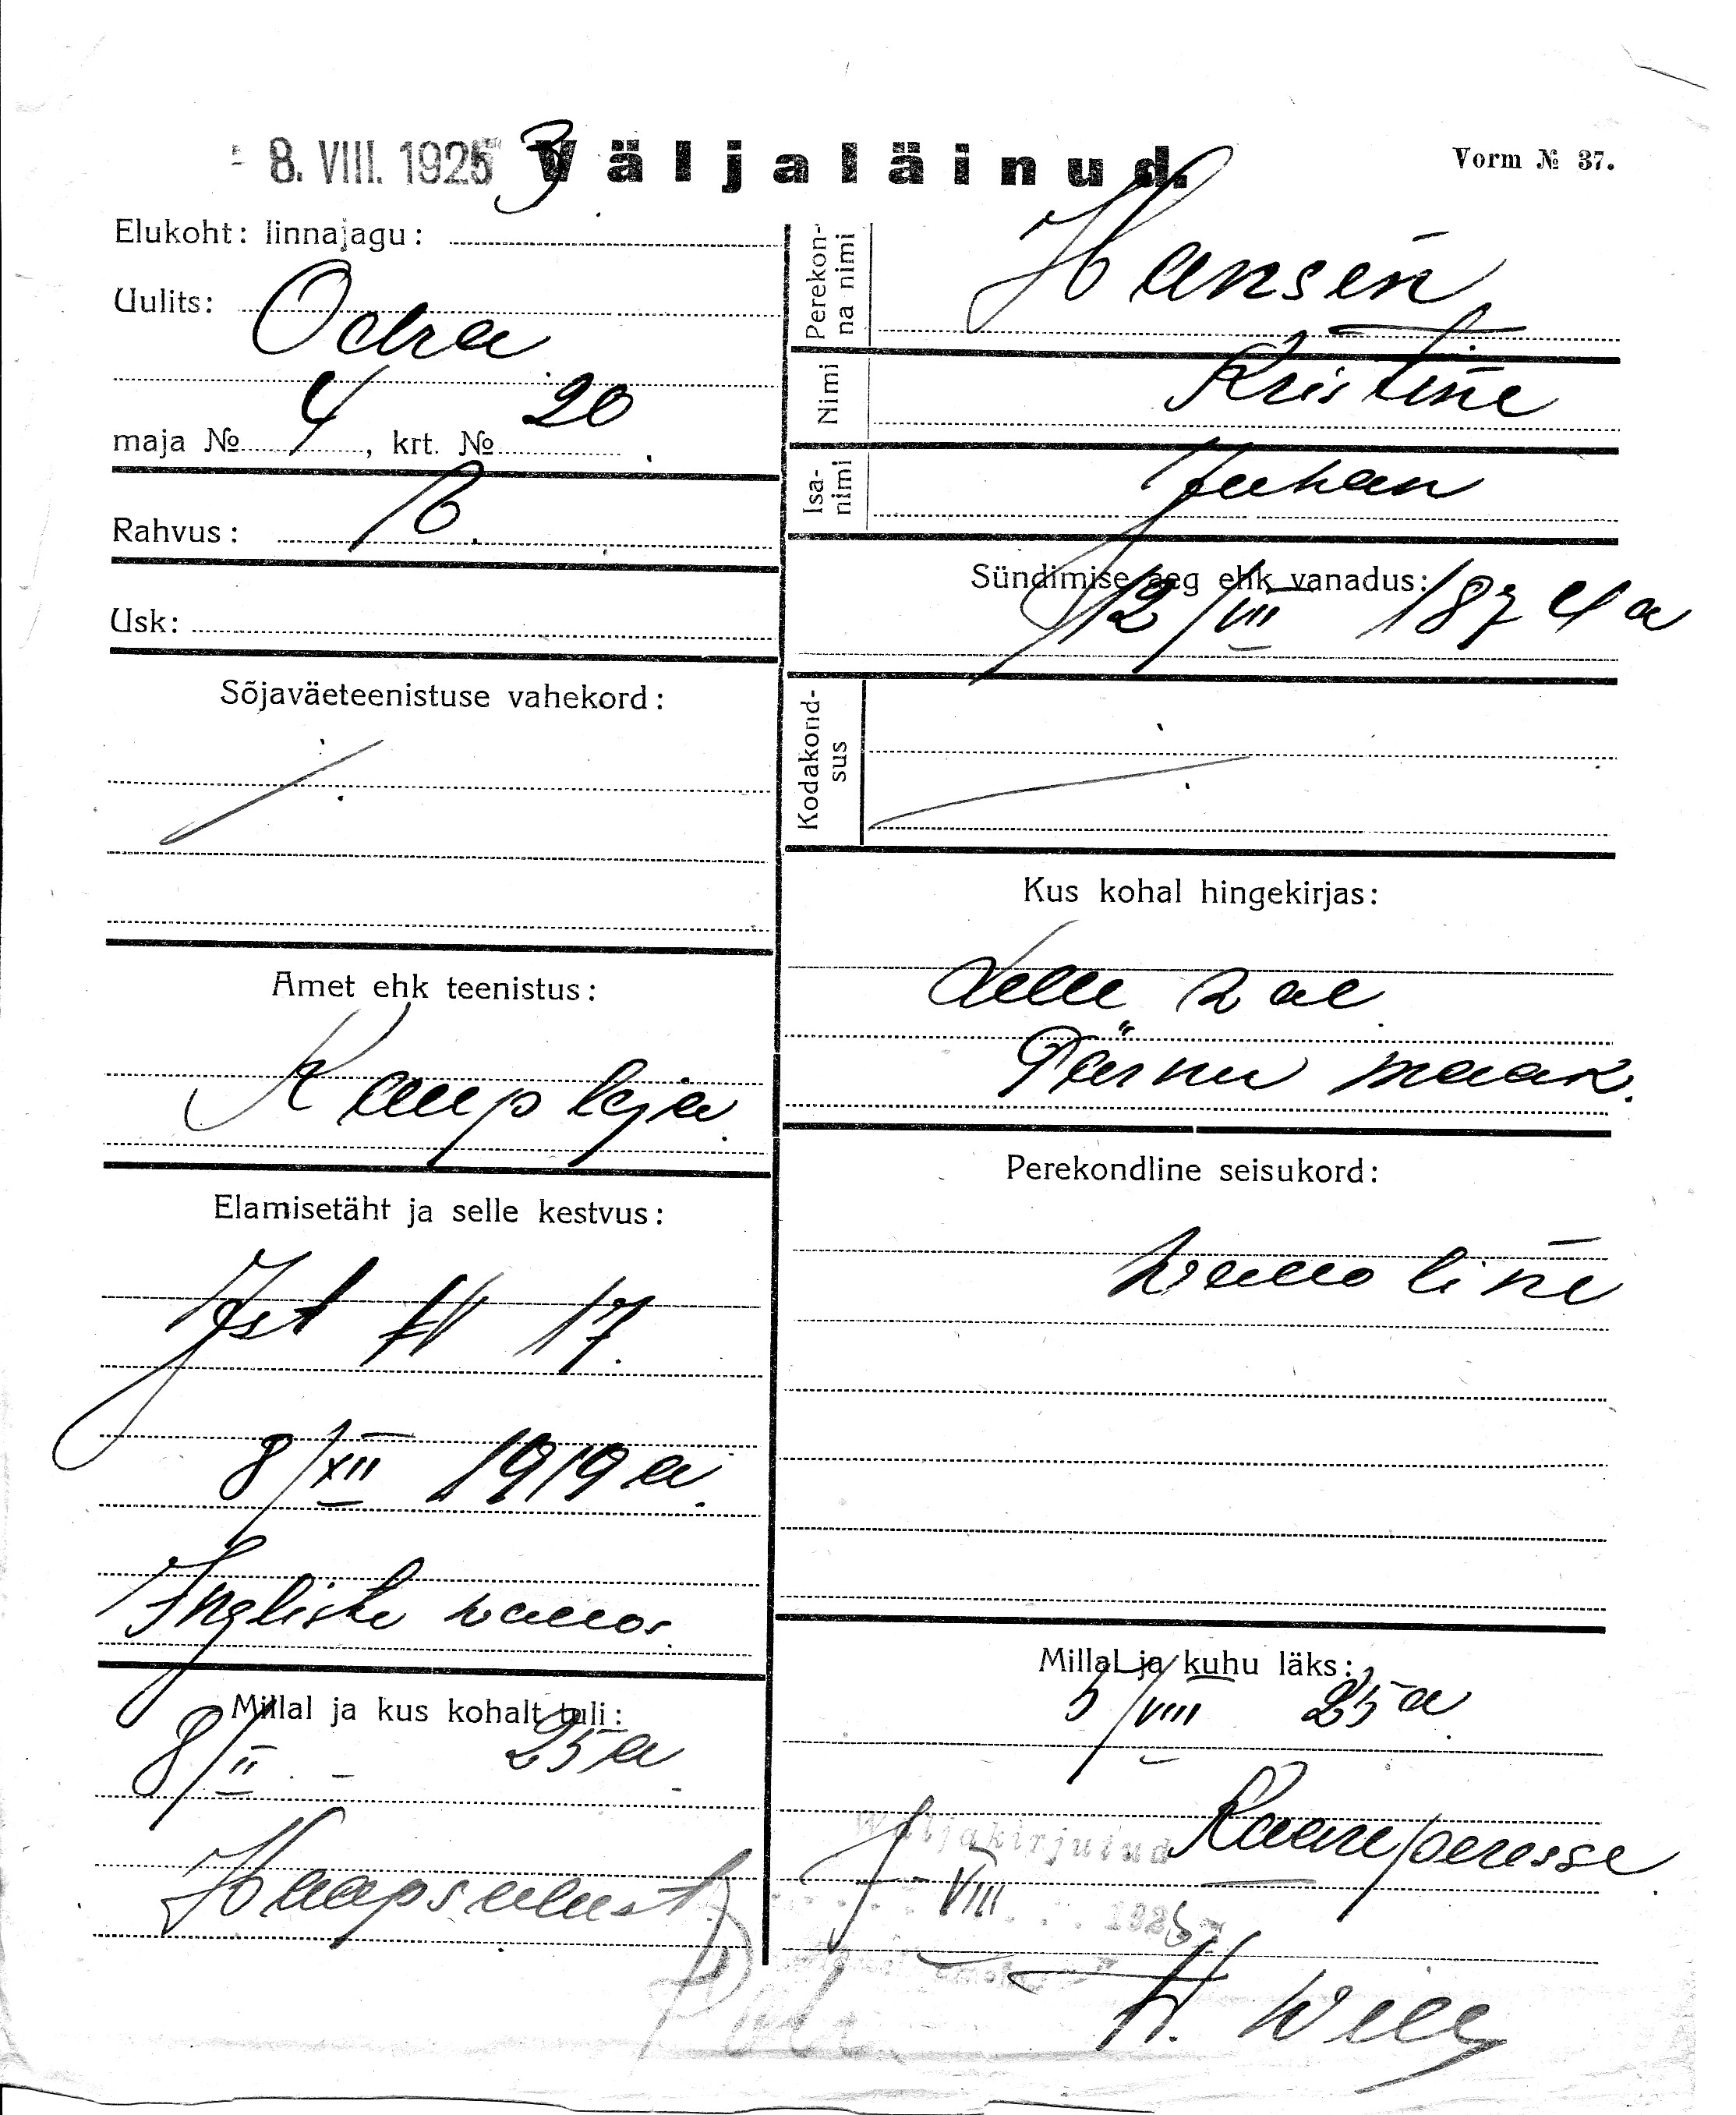 8. VIII. 1925 3
Väljaläinud.
Vorm № 37.
Elukoht: linnajagu:
Uulits: Odra
maja № 4, krt. № 20
Rahvus:
Usk:
Sõjaväeteenistuse vahekord:
Amet ehk teenistus:
Kaupleja.
Elamisetäht ja selle kestvus:
Ist IV 17.
8/XII 1919 a.
Ingliste wallas.
Millal ja kus kohalt tuli:
8/II 25 a.
Haapsalust
Perekonna nimi
Hansen,
Nimi
Kristine
Isanimi
Juhan
Sündimise aeg ehk vanadus:
12/VII 1874 a
Kodakondsus
Kus kohal hingekirjas:
Lelle wal.
Pärnu maak.
Perekondline seisukord:
Millal ja kuhu läks:
5/VIII 25 a.
Raareperesse.
Wäljakirjutud
VIII 1925